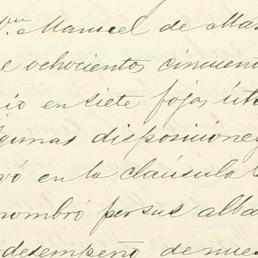 Dn Manuel de Ma
e ochocientos cincuent
io en siete fojas úti
lgunas disposicione
vó en la cláusula
nombró por sus alba
desempeño de nues